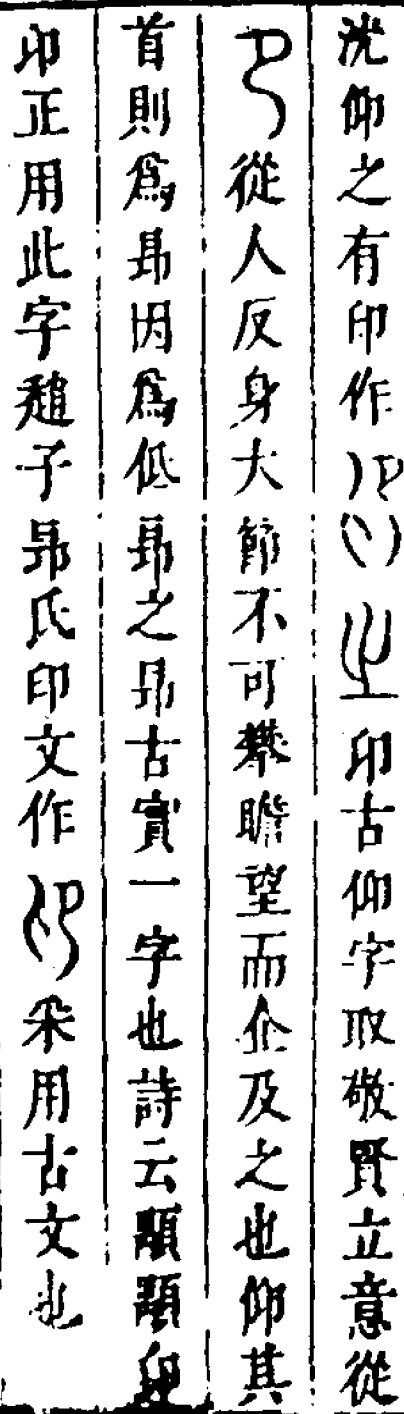 沈仰之有印作卬之印古仰字取敬賢立意從
卪從人反身大節不可攀瞻望而企及之也仰其
首則爲昻因爲低昻之昻古實一字也詩云顒顒卬
卬正用此字趙子昻氏印文作卬采用古文也